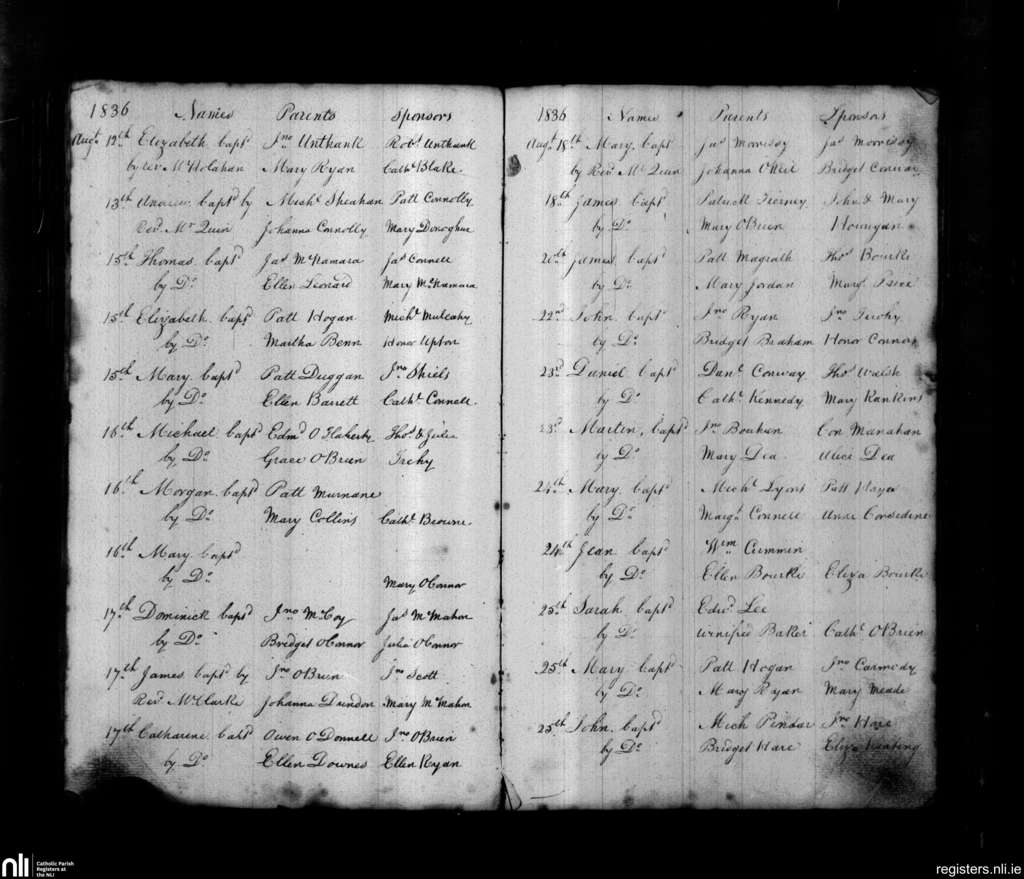 1836 Names Parents Sponsors
Augt 12th Elizabeth bapd Jno Unthank Robt Unthank
by Revd Mr Holahan Mary Ryan Cathe Blake
13th Andrew bapd by Michl Sheahan Patt Connolly
Revd Mr Quin Johanna Connolly Mary Donoghue
15th Thomas bapd Jas McNamara Jas Connell
by Do Ellen Leonard Mary McNamara
15th Elizabeth bapd Patt Hogan Michl Mulcahy
by Do Martha Benn Honor Upton
15th Mary bapd Patt Duggan Jno Shiels
by Do Ellen Barrett Cathe Connell
16th Michael bapd Edmd O Flaherty Thos & Julia
by Do Grace O'Brien
16th Morgan bapd Patt Murnane
by Do Mary Collins Cathe Browne
16th Mary bapd
by Do Mary O'Connor
17th Dominick bapd Jno McCoy Jas McMahon
by Do Bridget O'Connor Julia O'Connor
17th James bapd by Jno O'Brien Jno Scott
Revd Mr Clarke Johanna Dundon Mary McMahon
17th Catharine bapd Owen O'Donnell Jno O'Brien
by Do Ellen Downes Ellen Ryan
1836 Names Parents Sponsors
Augt 18th Mary bapd Jas Morrissy Jas Morrissy
by Revd Mr Quin Johanna O'Neil Bridget Conway
18th James bapd Patrick Tierney John & Mary
by Do Mary O'Brien Hourigan
20th James bapd Patt Magrath Thos Bourke
by Do Mary Jordan Margt
22nd John bapd Jno Ryan Jno
by Do Bridget Braham Honor Connors
23d Daniel bapd Danl Conway Thos Walsh
by Do Cathe Kennedy Mary Rankins
23d Martin bapd Jno Con Manahan
by Do Mary Dea Alice Dea
24th Mary bapd Michl Lyons Patt Hayes
by Do Margt Connell Considine
24th Jean bapd Wm Cummin
by Do Ellen Bourke Eliza Bourke
25th Sarah bapd Edwd Lee
by Do Winifred Baker Cathe O'Brien
25th Mary bapd Patt Hogan Jno Carmody
by Do Mary Ryan Mary Meade
25th John bapd Mich Pindar Jno Hare
by Do Bridget Hare Eliza Keating
nli Catholic Parish
Registers at
the NLI
registers.nli.ie